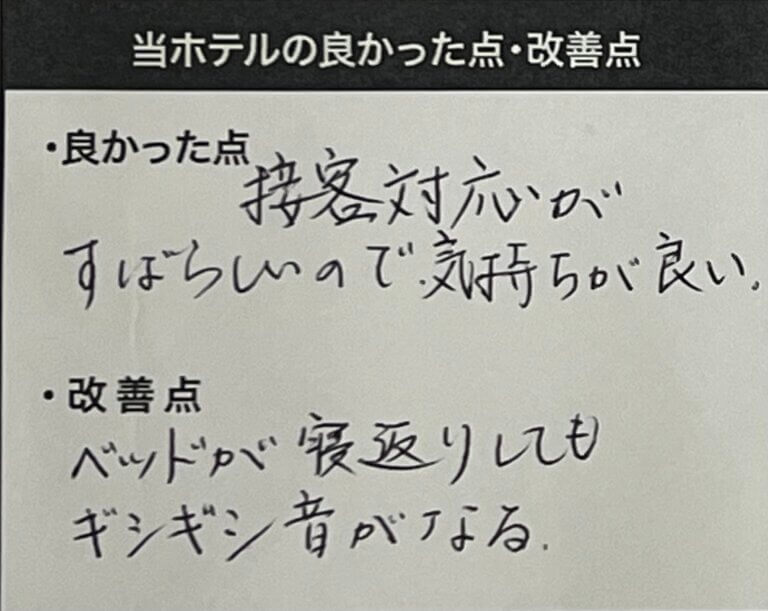 当ホテルの良かった点・改善点
・良かった点
接客対応が
すばらしいので気持ちが良い.
・改善点
ベッドが寝返りしても
ギシギシ音がなる.